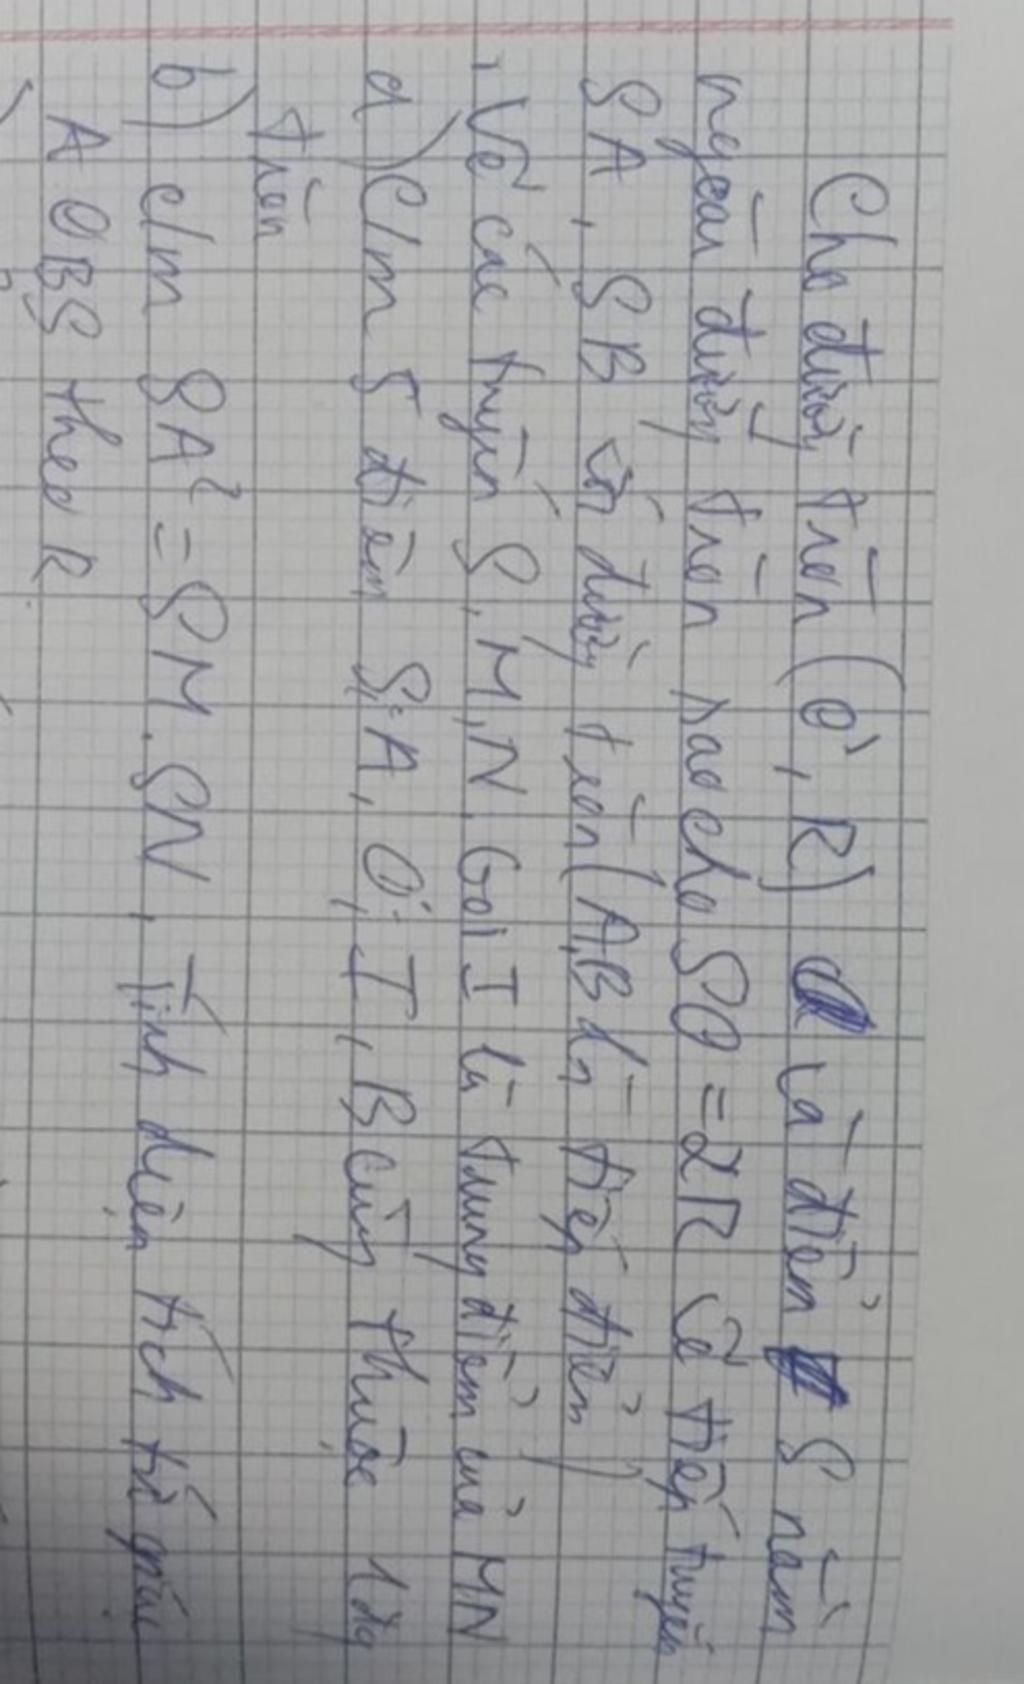 Cho đường tròn (O, R) là điểm S nằm
ngoài đường tròn sao cho SO = 2R vẽ tiếp tuyến
SA, SB với đường tròn (A,B là tiếp điểm)
, Vẽ cát tuyến S, M, N. Gọi I là trung điểm của MN
a) C/m 5 điểm S, A, O, I, B cùng thuộc 1 đg
tròn
b) c/m SA² = SM. SN, Tính diện tích tứ giác
A OBS theo R